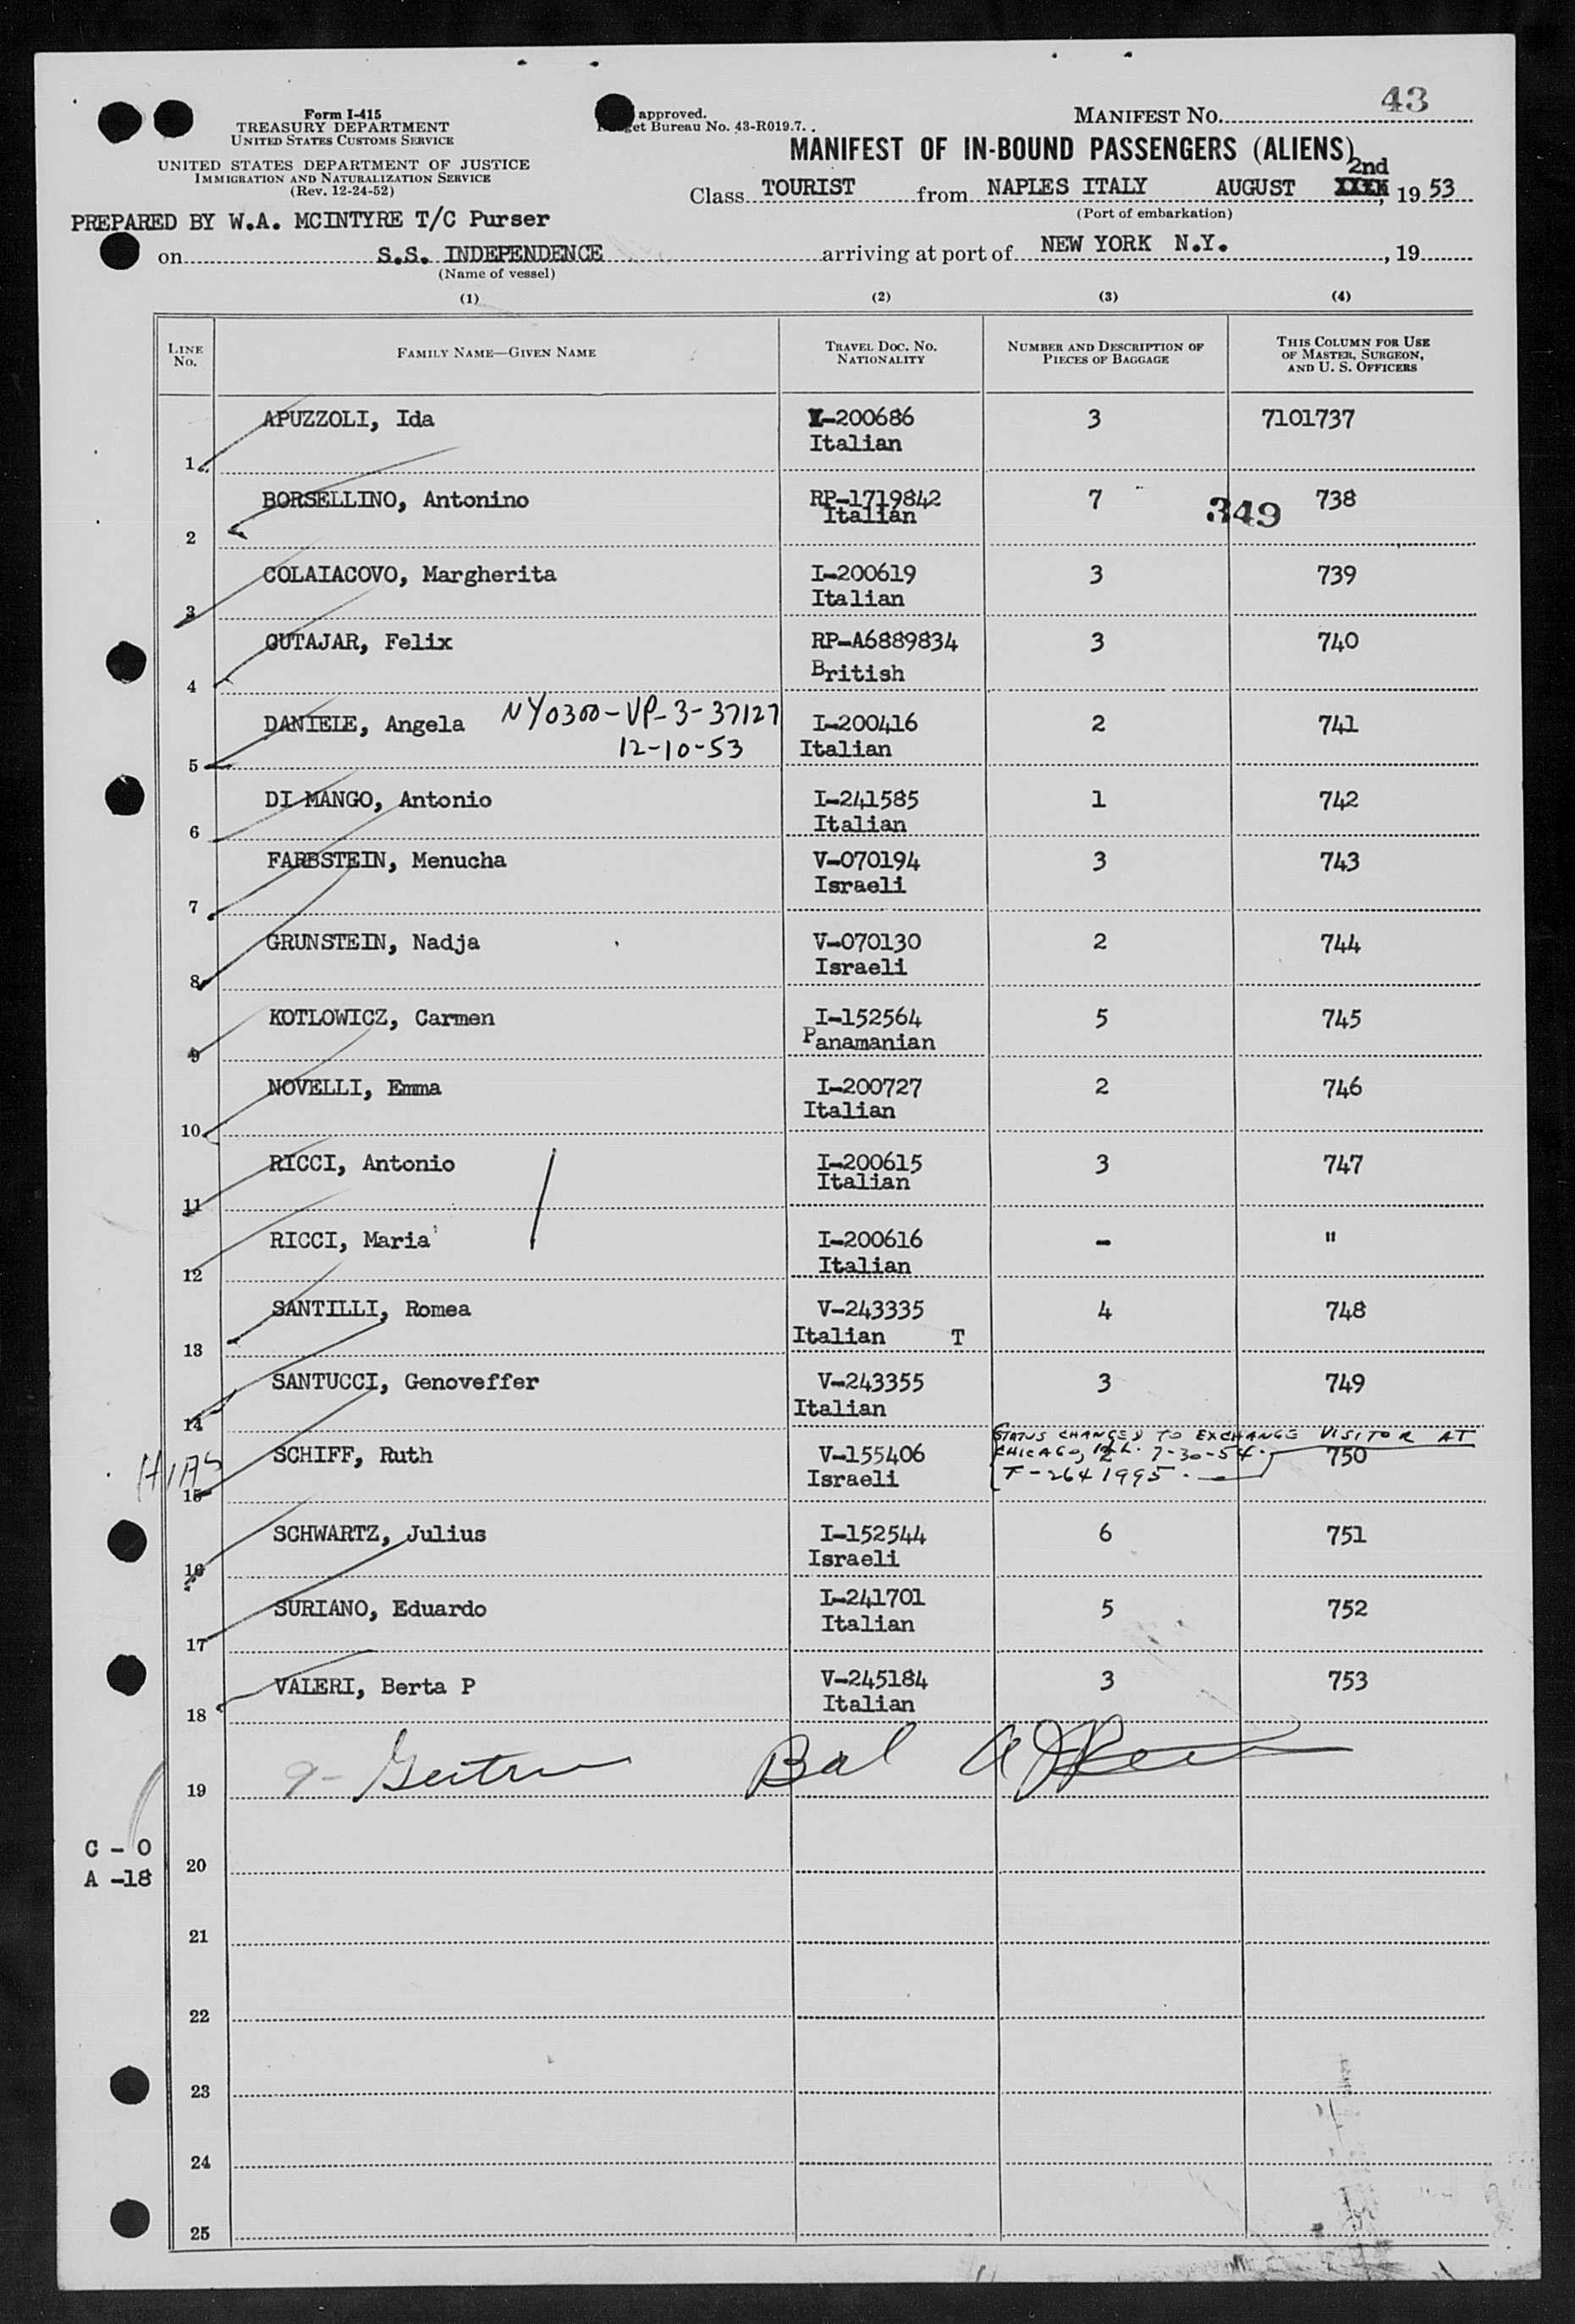 43
Form I-415
TREASURY DEPARTMENT
UNITED STATES CUSTOMS SERVICE
UNITED STATES DEPARTMENT OF JUSTICE
IMMIGRATION AND NATURALIZATION SERVICE
(Rev. 12-24-52)
approved.
et Bureau No. 43-R019.7.
MANIFEST NO.
MANIFEST OF IN-BOUND PASSENGERS (ALIENS)
2nd
Class TOURIST from NAPLES ITALY AUGUST , 19 53
(Port of embarkation)
PREPARED BY W.A. MCINTYRE T/C Purser
on S.S. INDEPENDENCE arriving at port of NEW YORK N.Y. , 19
(Name of vessel)
(1) (2) (3) (4)
LINE No. FAMILY NAME—GIVEN NAME TRAVEL DOC. NO. NATIONALITY NUMBER AND DESCRIPTION OF PIECES OF BAGGAGE THIS COLUMN FOR USE OF MASTER, SURGEON, AND U. S. OFFICERS
1 APUZZOLI, Ida I-200686 3 7101737
Italian
2 BORSELLINO, Antonino RP-1719842 7 349 738
Italian
3 COLAIACOVO, Margherita I-200619 3 739
Italian
4 GUTAJAR, Felix RP-A6889834 3 740
British
5 DANIELE, Angela NY0300-VP-3-37127 I-200416 2 741
12-10-53 Italian
6 DI MANGO, Antonio I-241585 1 742
Italian
7 FARBSTEIN, Menucha V-070194 3 743
Israeli
8 GRUNSTEIN, Nadja V-070130 2 744
Israeli
9 KOTLOWICZ, Carmen I-152564 5 745
Panamanian
10 NOVELLI, Emma I-200727 2 746
Italian
11 RICCI, Antonio I-200615 3 747
Italian
12 RICCI, Maria I-200616 - "
Italian
13 SANTILLI, Romea V-243335 4 748
Italian T
14 SANTUCCI, Genoveffer V-243355 3 749
Italian
STATUS CHANGED TO EXCHANGE VISITOR AT
CHICAGO, ILL. 7-30-54.
T-2641995.
HIAS 15 SCHIFF, Ruth V-155406 2 750
Israeli
16 SCHWARTZ, Julius I-152544 6 751
Israeli
17 SURIANO, Eduardo I-241701 5 752
Italian
18 VALERI, Berta P V-245184 3 753
Italian
19
C - 0
A -18
20
21
22
23
24
25